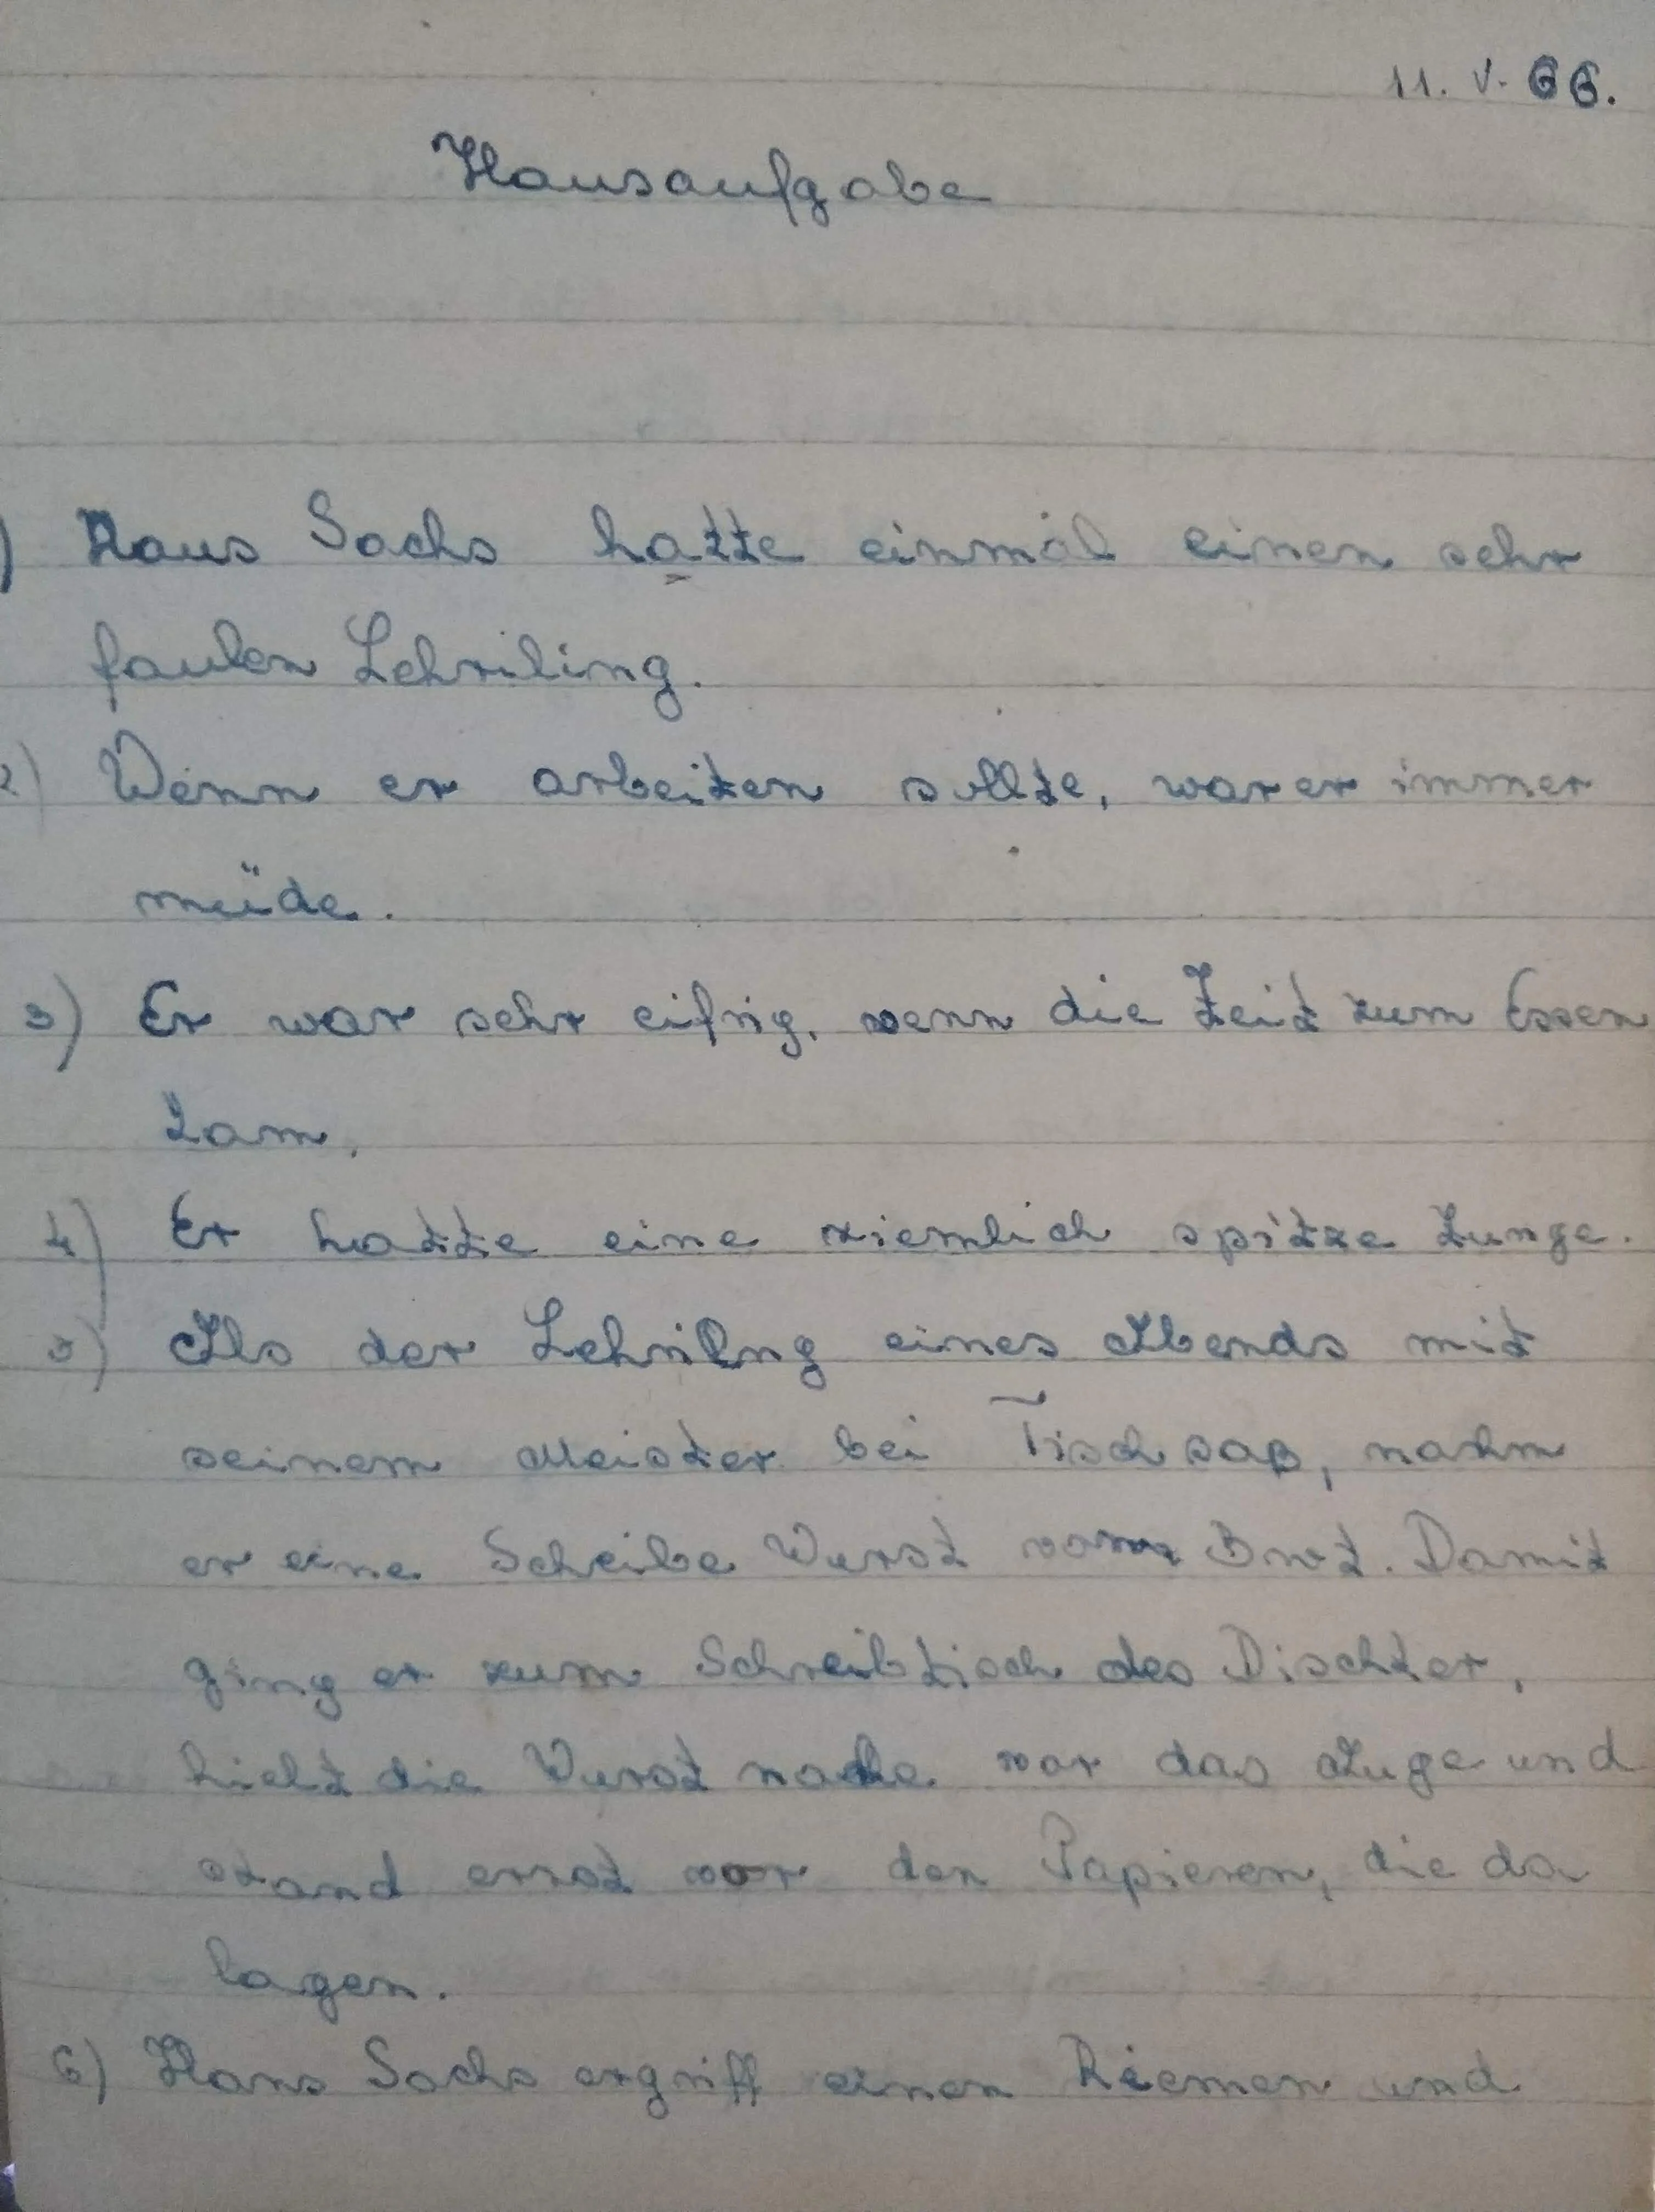 11. V. 66.
Hausaufgabe
) Haus Sachs hatte einmal einen sehr
faulen Lehriling.
2) Wenn er arbeiten sollte, war er immer
müde.
3) Er war sehr eifrig, wenn die Zeit zum Essen
kam.
4) Er hatte eine ziemlich spitze Zunge.
5) Als der Lehrilng eines Abends mit
seinem Meister bei Tisch saß, nahm
er eine Scheibe Wurst vom Brot. Damit
ging er zum Schreibtisch des Dischter,
hielt die Wurst nahe vor das Auge und
stand erst vor den Papieren, die da
lagen.
6) Hans Sachs ergriff einen Riemen und